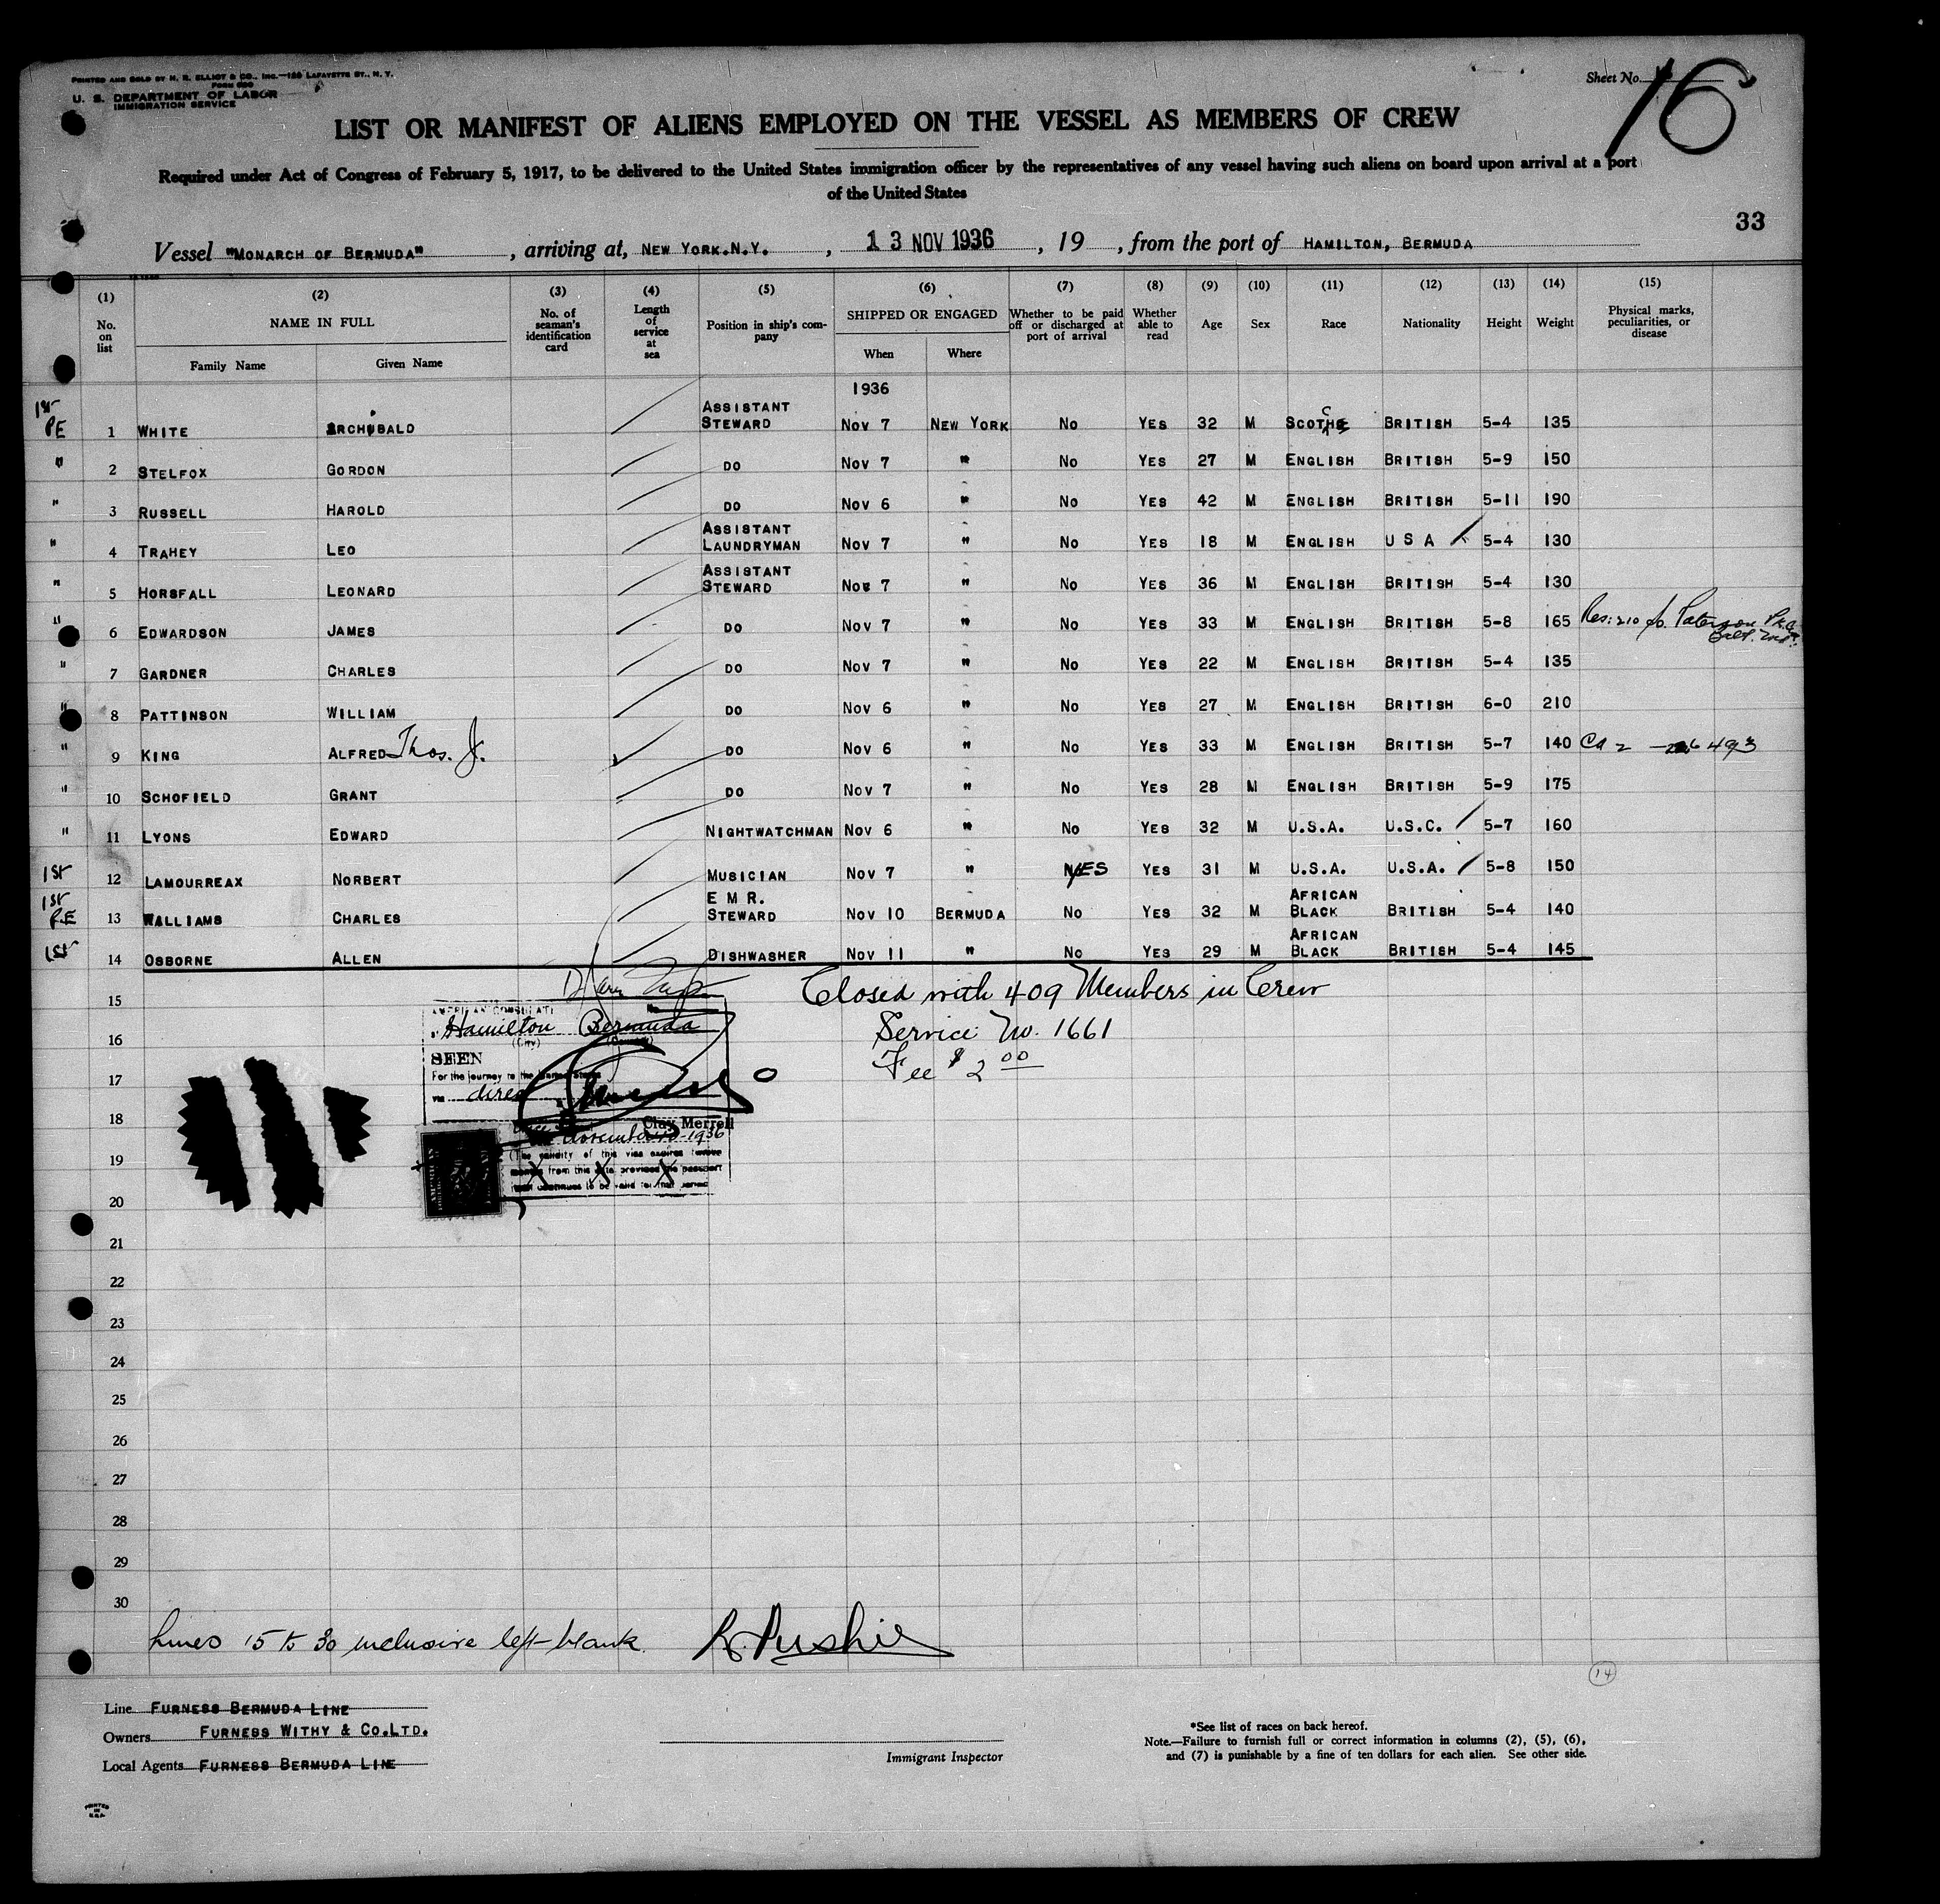 PRINTED AND SOLD BY H. R. ELLIOT & CO., INC.—129 LAFAYETTE ST., N. Y.
U. S. DEPARTMENT OF LABOR
IMMIGRATION SERVICE
Sheet No. 16
LIST OR MANIFEST OF ALIENS EMPLOYED ON THE VESSEL AS MEMBERS OF CREW
Required under Act of Congress of February 5, 1917, to be delivered to the United States immigration officer by the representatives of any vessel having such aliens on board upon arrival at a port
of the United States
33
Vessel "MONARCH OF BERMUDA", arriving at, NEW YORK.N.Y., 13 NOV 1936, 19 , from the port of HAMILTON, BERMUDA
(1) (2) (3) (4) (5) (6) (7) (8) (9) (10) (11) (12) (13) (14) (15)
No. on list NAME IN FULL No. of seaman's identification card Length of service at sea Position in ship's company SHIPPED OR ENGAGED Whether to be paid off or discharged at port of arrival Whether able to read Age Sex Race Nationality Height Weight Physical marks, peculiarities, or disease
Family Name Given Name When Where
1936
1st PE 1 WHITE ARCHIBALD ASSISTANT STEWARD Nov 7 NEW YORK No YES 32 M SCOTCH BRITISH 5-4 135
" 2 STELFOX GORDON DO Nov 7 " No YES 27 M ENGLISH BRITISH 5-9 150
" 3 RUSSELL HAROLD DO Nov 6 " No YES 42 M ENGLISH BRITISH 5-11 190
" 4 TRAHEY LEO ASSISTANT LAUNDRYMAN Nov 7 " No YES 18 M ENGLISH U S A 5-4 130
" 5 HORSFALL LEONARD ASSISTANT STEWARD Nov 7 " No YES 36 M ENGLISH BRITISH 5-4 130
" 6 EDWARDSON JAMES DO Nov 7 " No YES 33 M ENGLISH BRITISH 5-8 165 Res: 210 So. Paterson Pk. Balt. Md.
" 7 GARDNER CHARLES DO Nov 7 " No YES 22 M ENGLISH BRITISH 5-4 135
" 8 PATTINSON WILLIAM DO Nov 6 " No YES 27 M ENGLISH BRITISH 6-0 210
" 9 KING ALFRED Thos. J. DO Nov 6 " No YES 33 M ENGLISH BRITISH 5-7 140
" 10 SCHOFIELD GRANT DO Nov 7 " No YES 28 M ENGLISH BRITISH 5-9 175
" 11 LYONS EDWARD NIGHTWATCHMAN Nov 6 " No YES 32 M U.S.A. U.S.C. 5-7 160
1st 12 LAMOURREAX NORBERT MUSICIAN Nov 7 " YES YES 31 M U.S.A. U.S.A. 5-8 150
1st P.E 13 WALLIAMS CHARLES E M R. STEWARD Nov 10 BERMUDA No YES 32 M AFRICAN BLACK BRITISH 5-4 140
1st 14 OSBORNE ALLEN DISHWASHER Nov 11 " No YES 29 M AFRICAN BLACK BRITISH 5-4 145
Closed with 409 Members in Crew
Service No. 1661
Fee $ 2 00
AMERICAN CONSULATE
Hamilton Bermuda
(City) (Country)
SEEN
For the journey to the United States
via direct
Clay Merrell
November 1936
(The validity of this visa expires twelve
months from this date provided the passport
continues to be valid for that period
15
16
17
18
19
20
21
22
23
24
25
26
27
28
29
30
Lines 15 to 30 inclusive left blank. R. Pushie
14
Line FURNESS BERMUDA LINE
Owners FURNESS WITHY & CO.LTD.
Local Agents FURNESS BERMUDA LINE
Immigrant Inspector
*See list of races on back hereof.
Note.—Failure to furnish full or correct information in columns (2), (5), (6),
and (7) is punishable by a fine of ten dollars for each alien. See other side.
PRINTED
IN
U.S.A.